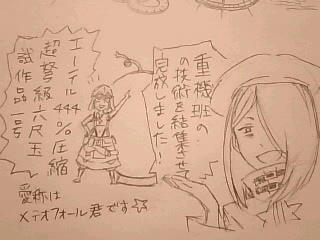 重機班の
の技術を結集させて
完成しました！
エーテル444%圧縮
超弩級六尺玉
試作品一号
愛称は
メテオフォール君です☆